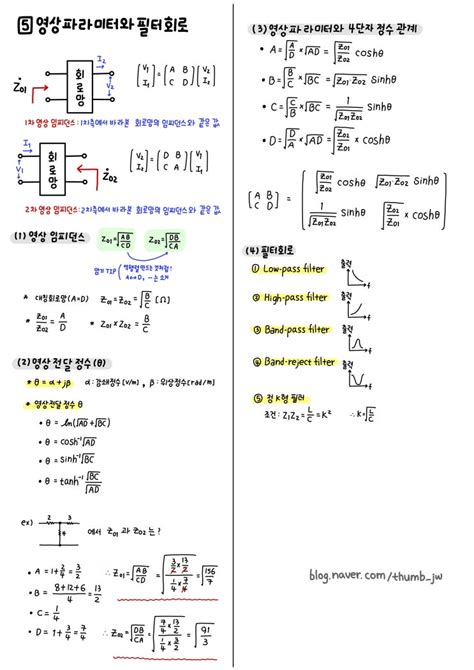 5 영상파라미터와 필터회로
Z01 회로망 I2 V2
[V1 I1] = [A B C D][V2 I2]
1차 영상 임피던스: 1차측에서 바라본 회로망의 임피던스와 같은 값
I1 V1 회로망 Z02
[V2 I2] = [D B C A][V1 I1]
2차 영상 임피던스: 2차측에서 바라본 회로망의 임피던스와 같은 값
(1) 영상 임피던스 Z01=√(AB/CD) Z02=√(DB/CA)
* 대칭회로망(A=D) Z01=Z02=√(B/C) [Ω]
* Z01/Z02 = A/D * Z01×Z02 = B/C
(2) 영상 전달 정수(θ)
* θ = α+jβ α:감쇄정수[v/m], β:위상정수[rad/m]
* 영상전달정수 θ
• θ = ln(√AD+√BC)
• θ = cosh⁻¹√AD
• θ = sinh⁻¹√BC
• θ = tanh⁻¹ √BC/√AD
ex) 2 3 4 에서 Z01 과 Z02 는?
• A = 1+2/4 = 3/2
• B = 8+12+6/4 = 13/2
• C = 1/4
• D = 1+3/4 = 7/4
∴ Z01=√(AB/CD) = √((3/2×13/2)/(1/4×7/4)) = √(156/7)
∴ Z02=√(DB/CA) = √((7/4×13/2)/(1/4×3/2)) = √(91/3)
(3) 영상 파라미터와 4단자 정수 관계
• A = √(A/D) × √AD = √(Z01/Z02) coshθ
• B = √(B/C) × √BC = √(Z01·Z02) Sinhθ
• C = √(C/B) × √BC = 1/√(Z01Z02) Sinhθ
• D = √(D/A) × √AD = √(Z02/Z01) × coshθ
[A B C D] = [√(Z01/Z02) coshθ √(Z01Z02) Sinhθ 1/√(Z01Z02) Sinhθ √(Z02/Z01) × coshθ]
(4) 필터회로
① Low-pass filter 출력 f
② High-pass filter 출력 f
③ Band-pass filter 출력 f
④ Band-reject filter 출력 f
⑤ 정K형 필터
조건: Z1Z2 = L/C = K² ∴K=√(L/C)
blog.naver.com/thumb_jw